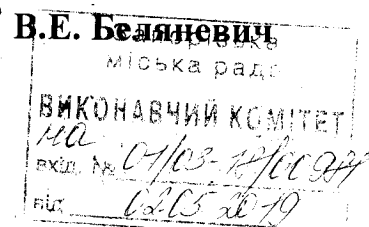 В.Е. Беляневич
міська рада
ВИКОНАВЧИЙ КОМІТЕТ
на
вхід. №
від 02 05 2019